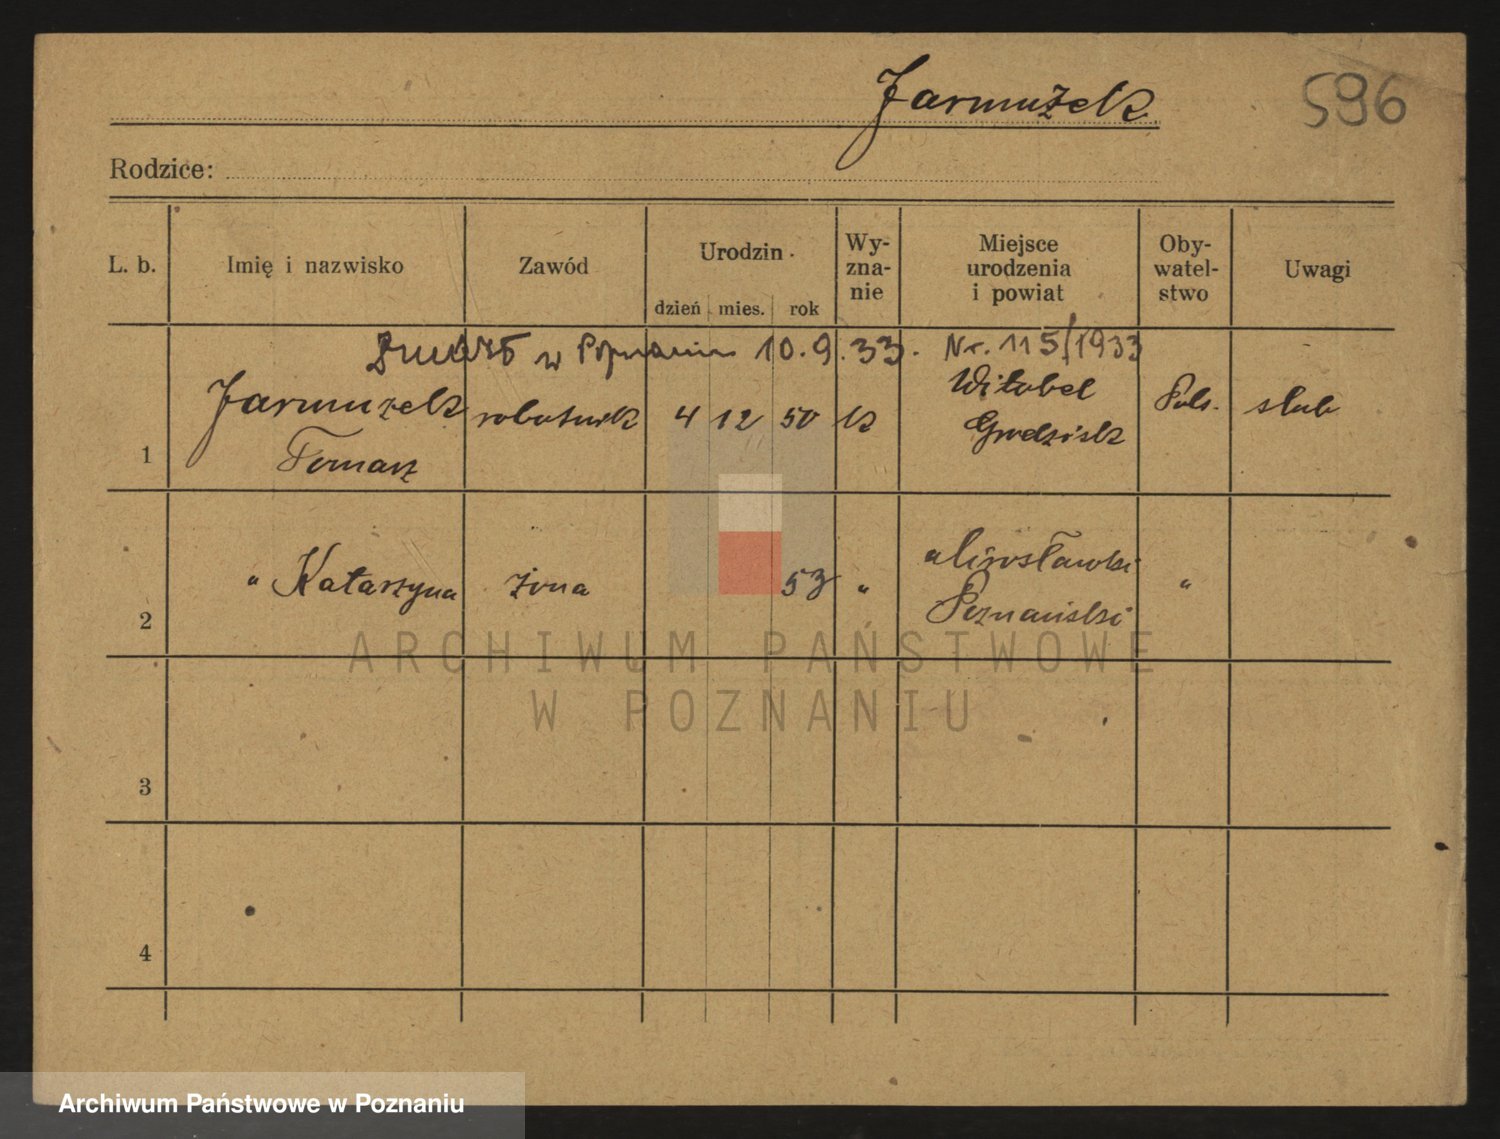 Jarmużek
596
Rodzice:
L. b.
Imię i nazwisko
Zawód
Urodzin
dzień mies. rok
Wy-
zna-
nie
Miejsce
urodzenia
i powiat
Oby-
watel-
stwo
Uwagi
w Poznaniu 10.9.33. Nr. 115/1933
1
Jarmużek
Tomasz
robotnik
4 12 50
k
Witobel
Grodzisk
Pols.
ślub
2
" Katarzyna
żona
53
"
Mirosławki
Poznański
"
3
4
ARCHIWUM PAŃSTWOWE
W POZNANIU
Archiwum Państwowe w Poznaniu